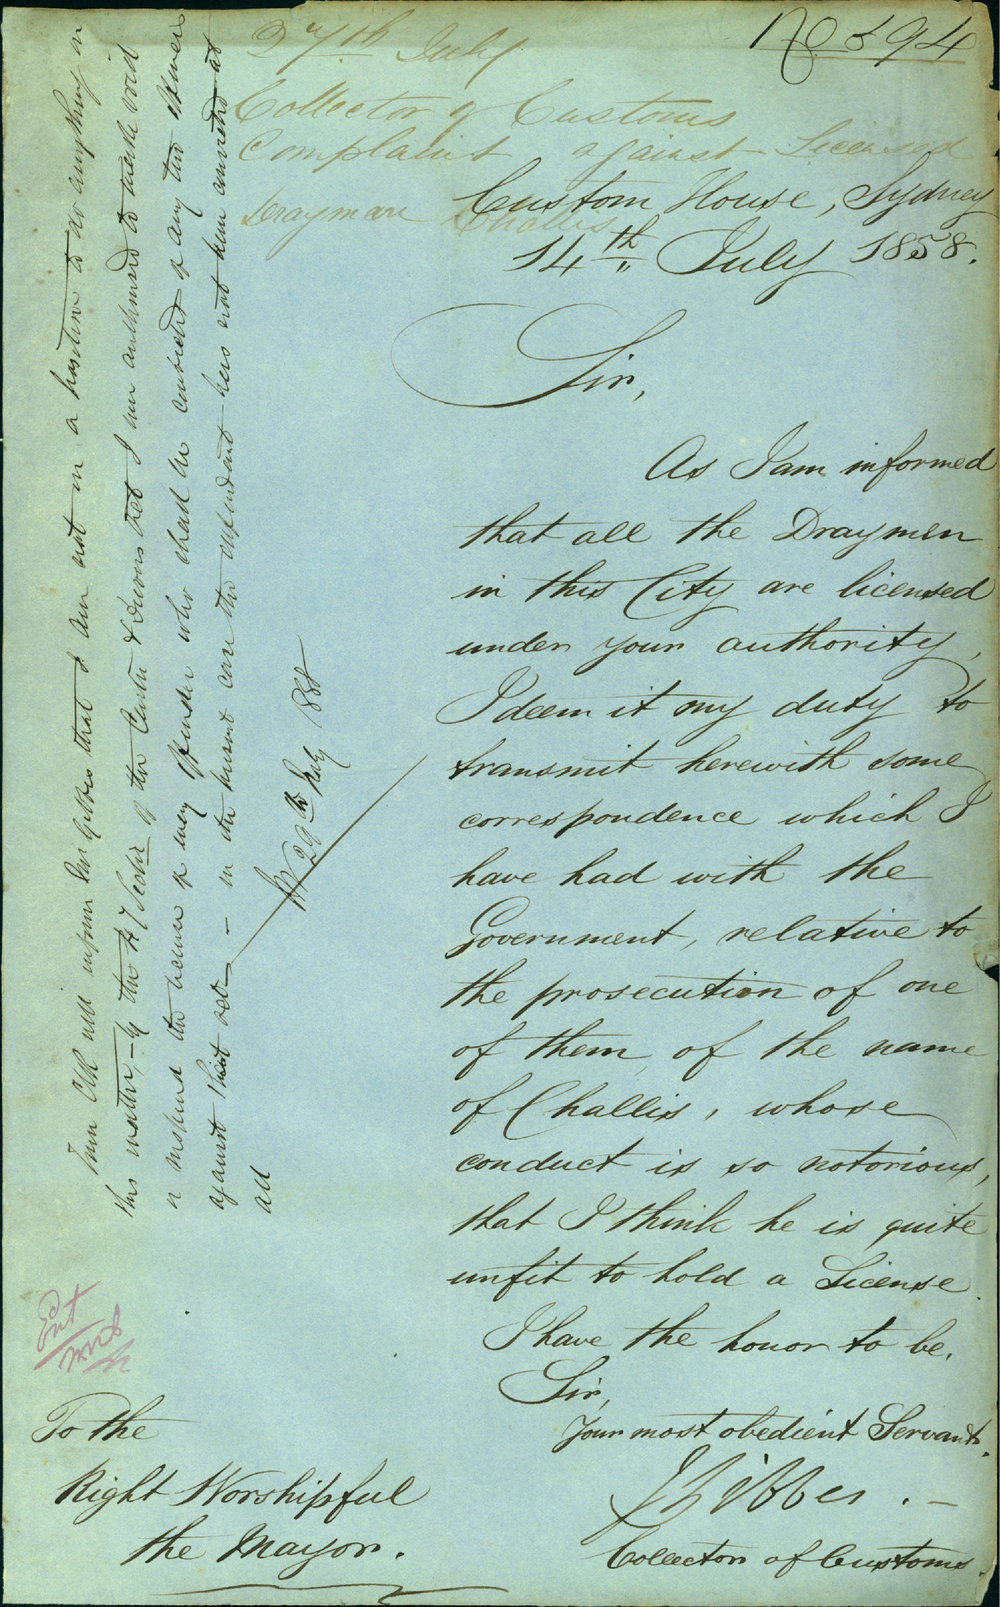 No 594
27th July
Collector of Customs
Complaint against Licensed
Drayman Challis
Custom House, Sydney
14th July 1858.
Sir,
As I am informed
that all the Draymen
in this City are licensed
under your authority,
I deem it my duty to
transmit herewith some
correspondence which I
have had with the
Government, relative to
the prosecution of one
of them, of the name
of Challis, whose
conduct is so notorious,
that I think he is quite
unfit to hold a License.
I have the honor to be,
Sir,
Your most obedient Servant,
Gibbes
Collector of Customs
To the
Right Worshipful
the Mayor.
Town Clk will inform Col Gibbes that I am not in a position to do anything in
this matter, by the 7 Sectn of the Carters & Drivers Act I am authorised to make void
or suspend the license of every offender who shall be convicted of any two offences
against that act — in the present case the defendant has not been convicted at
all
29th July 1858